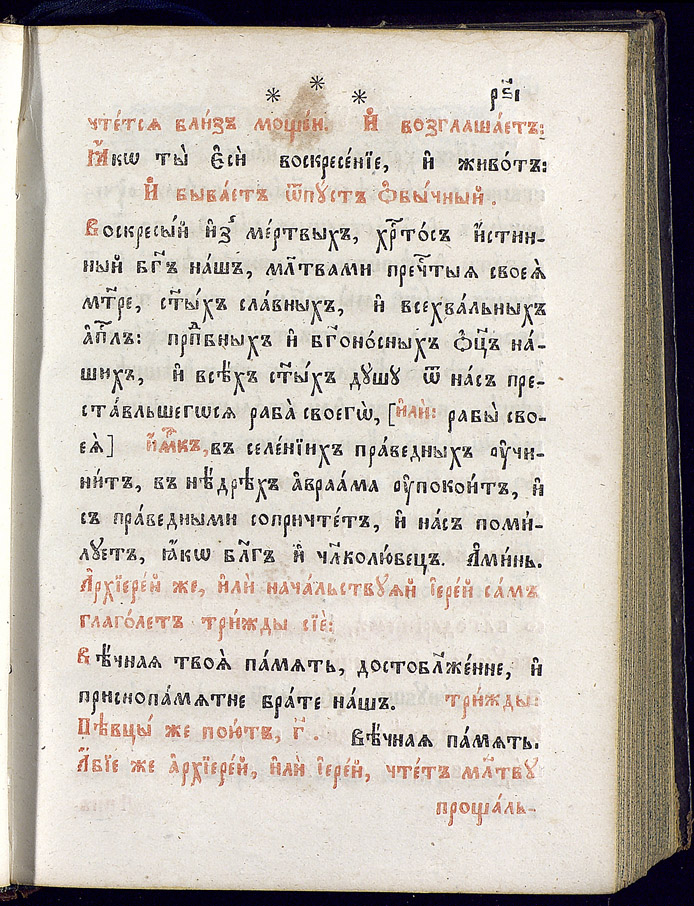 * * * рѕ҃і
чте́тсѧ бли́зъ моще́й. И҆ возглаша́етъ:
Ꙗ҆́кѡ ты̀ є҆сѝ воскресе́нїе, и҆ живо́тъ:
И҆ быва́етъ ѿпꙋ́стъ ѻ҆бы́чный.
Воскресы́й и҆з̾ ме́ртвыхъ, хрⷭ҇то́съ и҆́стин-
ный бг҃ъ на́шъ, мл҃твами пречⷭ҇тыѧ своеѧ̀
мт҃ре, ст҃ы́хъ сла́вныхъ, и҆ всехва́льныхъ
а҆пⷭ҇лъ: прпⷣбныхъ и҆ бг҃оно́сныхъ ѻ҆ц҃ъ на́-
шихъ, и҆ всѣ́хъ ст҃ы́хъ дꙋ́шꙋ ѿ на́съ пре-
ста́вльшегѡсѧ раба̀ своегѡ̀, [и҆лѝ: рабы̀ сво-
еѧ̀] и҆́м҃къ, въ селе́нїихъ пра́ведныхъ ᲂу҆чи-
ни́тъ, въ нѣ́дрѣхъ а҆враа́ма ᲂу҆поко́итъ, и҆
съ пра́ведными сопричте́тъ, и҆ на́съ поми́-
лꙋетъ, ꙗ҆́кѡ бл҃гъ и҆ чл҃колю́бецъ. А҆ми́нь.
А҆рхїере́й же, и҆лѝ нача́льствꙋѧй і҆ере́й са́мъ
глаго́летъ три́жды сїѐ:
Вѣ́чнаѧ твоѧ̀ па́мѧть, достобл҃же́нне, и҆
приснопа́мѧтне бра́те на́шъ. три́жды:
Пѣвцы́ же пою́тъ, г҃. Вѣ́чнаѧ па́мѧть.
А҆́бїе же а҆рхїере́й, и҆лѝ і҆ере́й, чте́тъ мл҃твꙋ
проща́ль-